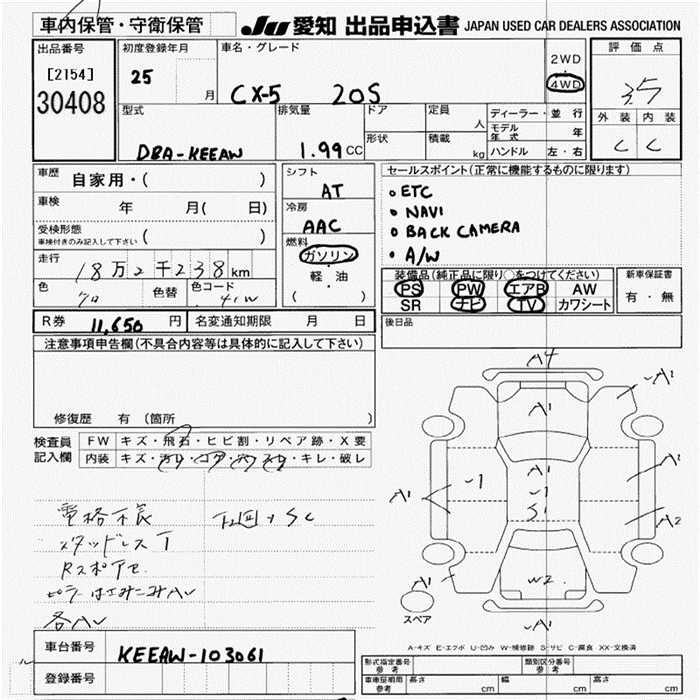 車内保管・守衛保管
JU 愛知 出品申込書 JAPAN USED CAR DEALERS ASSOCIATION
出品番号
[2154]
30408
初度登録年月
25
月
車名・グレード
CX-5 20S
2WD
4WD
評価点
3.5
外装 内装
C C
型式
DBA-KEEAW
排気量
1.99 CC
ドア
形状
定員
人
積載
kg
ディーラー・並行
モデル年式 年
ハンドル 左・右
車歴
自家用・( )
車検
年 月( 日)
受検形態
車検付きのみ記入して下さい
( )
走行
18万2千238km
色
クロ
色替
色コード
41W
シフト
AT
冷房
AAC
燃料
ガソリン
軽・油
( )
セールスポイント(正常に機能するものに限ります)
• ETC
• NAVI
• BACK CAMERA
• A/W
装備品(純正品に限り○をつけてください)
PS PW エアB AW
SR ナビ TV カワシート
新車保証書
有・無
R券 11,650 円
名変通知期限 月 日
後日品
注意事項申告欄(不具合内容等は具体的に記入して下さい)
修復歴 有 (箇所 )
検査員
記入欄
FW キズ・飛石・ヒビ割・リペア跡・X要
内装 キズ・汚れ・コゲ・穴・スレ・キレ・破レ
電格不良 下回りSC
スタッドレスT
Rスポアセ
各AU
A4
A1
A1
A1
A1
-1
S1
-1
A1
A1
A2
A1
W2
A1
スペア
A1
A-キズ E-エクボ U-凹み W-補修跡 S-サビ C-腐食 XX-交換済
車台番号
KEEAW-103061
登録番号
型式指定番号
参考
類別区分番号
参考
車庫証明用
参考
長さ cm
幅 cm
高さ cm